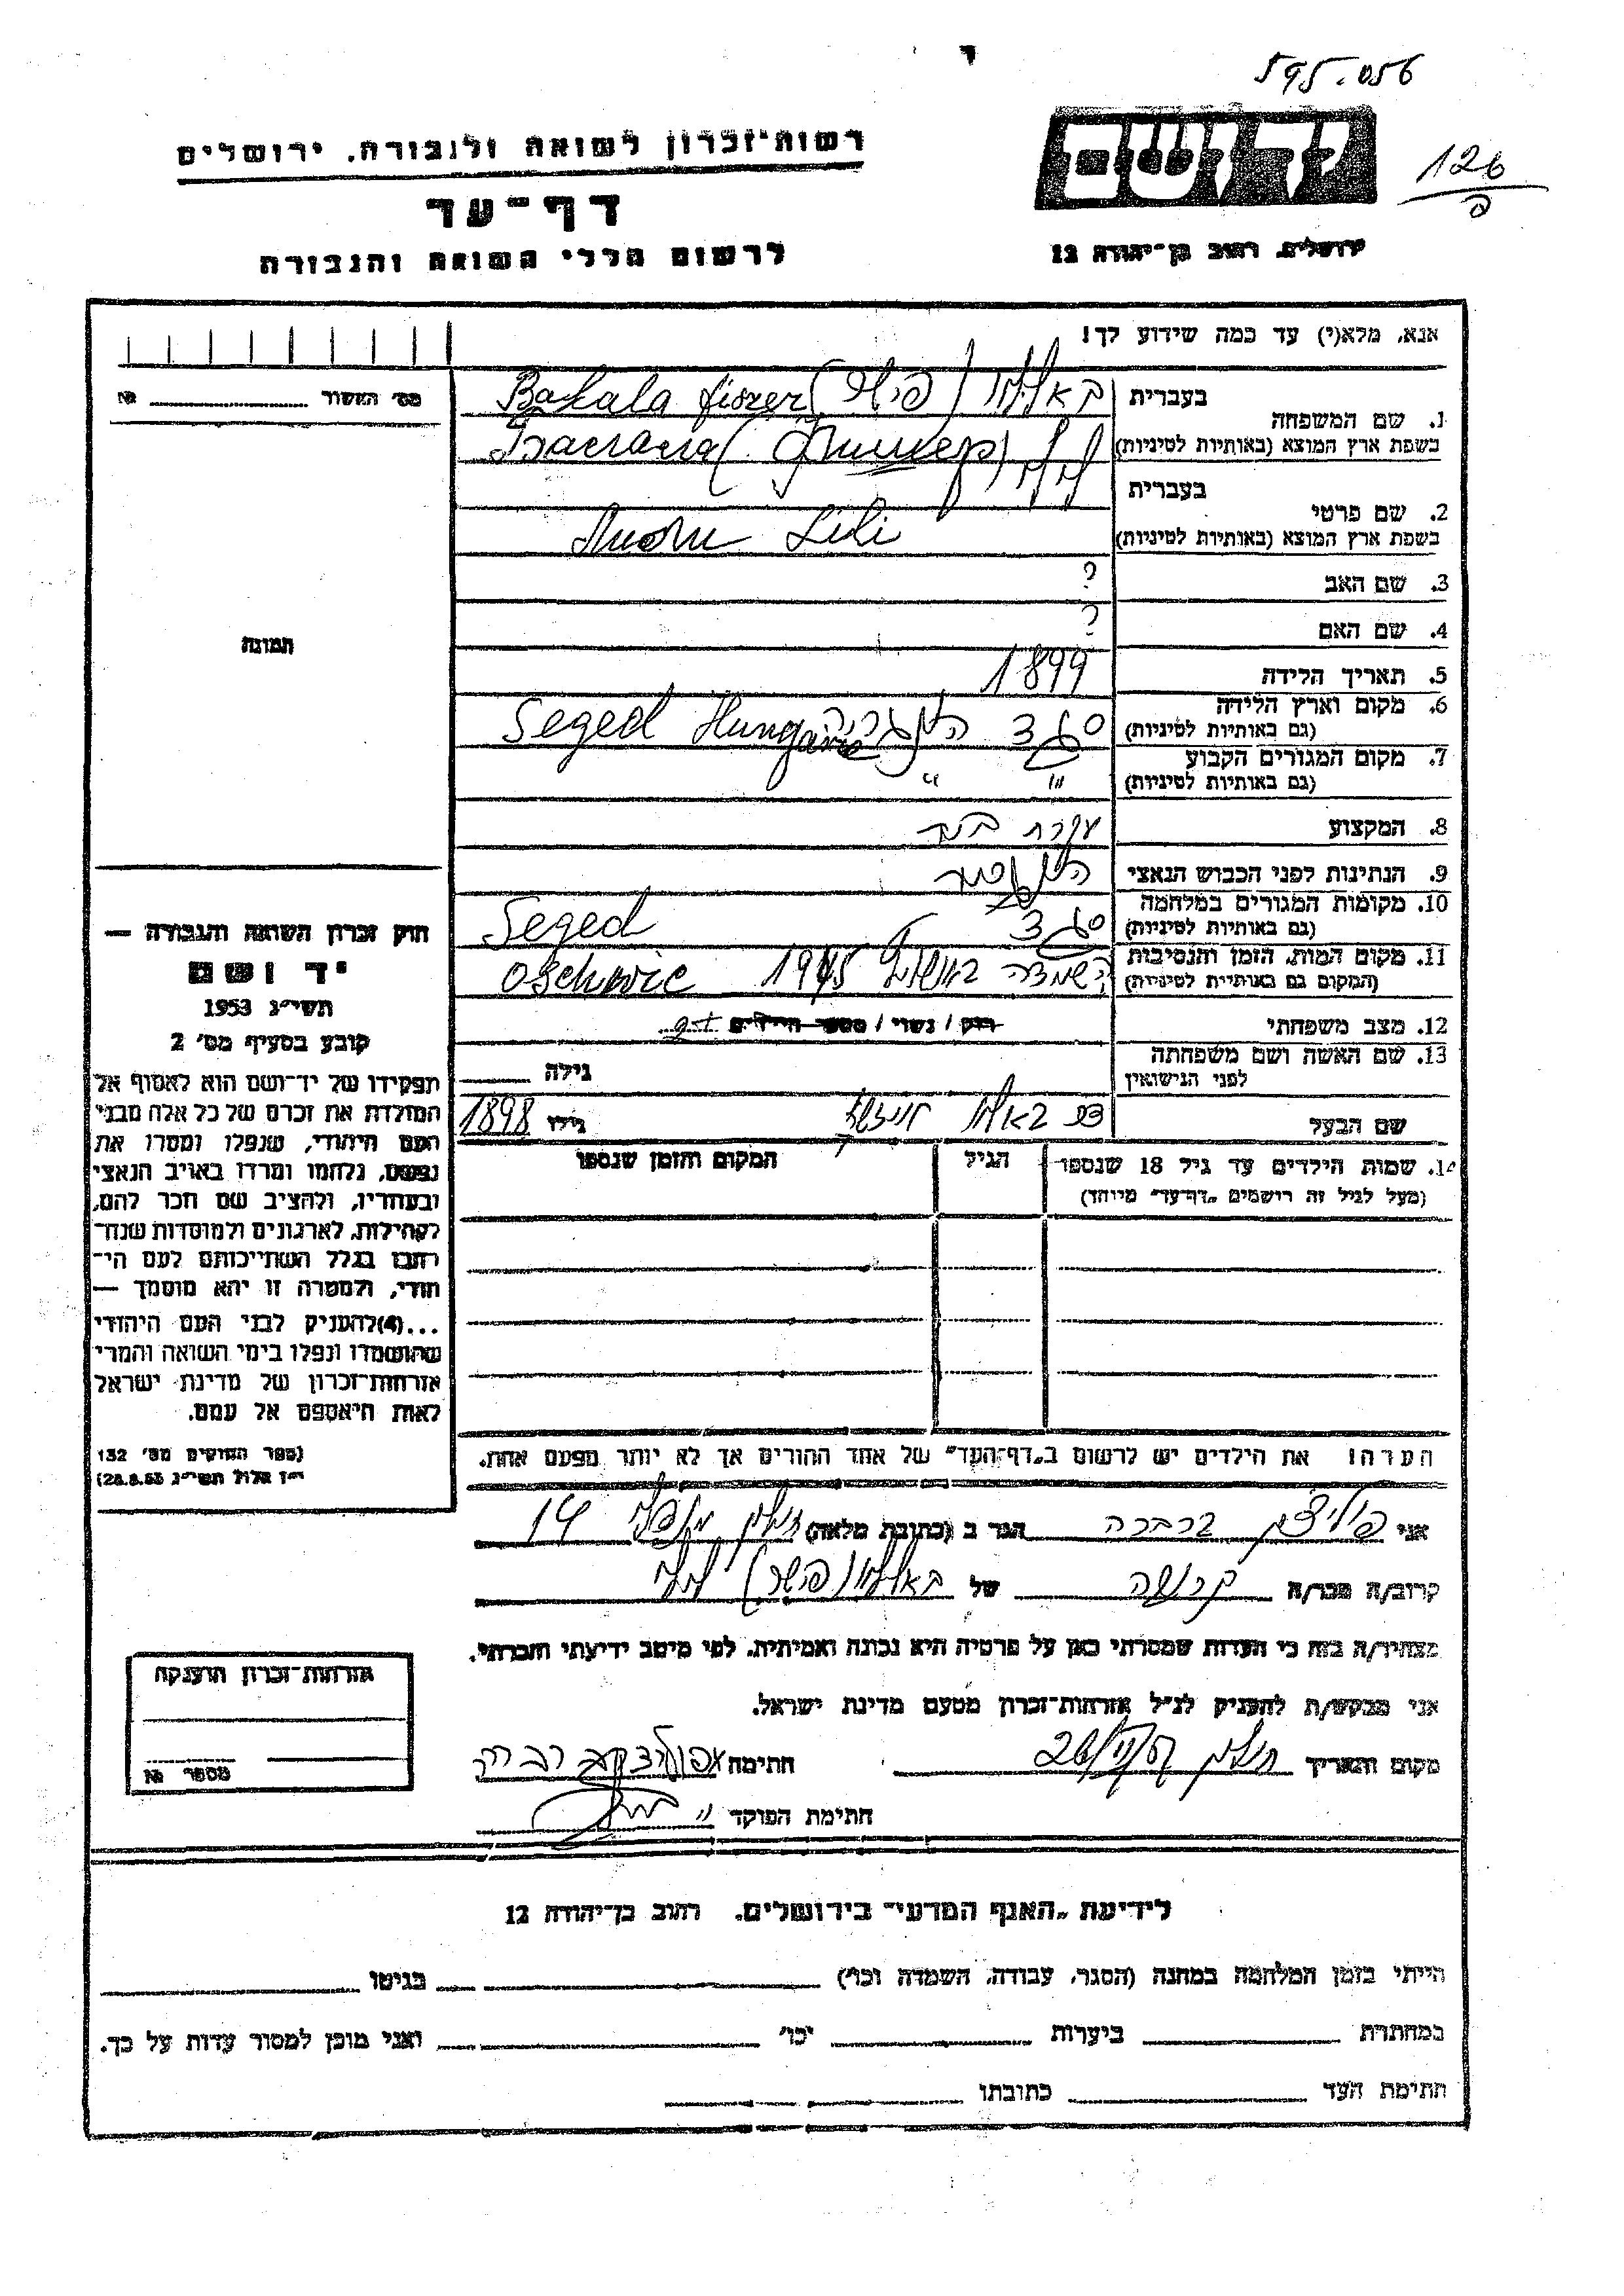 595.056
126
רשות־זכרון לשואה ולגבורה. ירושלים
דף־עד
לרשום חללי השואה והגבורה
יד ושם
ירושלים, רחוב בן־יהודה 12
אנא, מלא(י) עד כמה שידוע לך!
מס' האשור №
1. שם המשפחה
בעברית
בשפת ארץ המוצא (באותיות לטיניות)
Bakala fiszer
2. שם פרטי
בעברית
בשפת ארץ המוצא (באותיות לטיניות)
לילי
Lili
3. שם האב
?
4. שם האם
?
5. תאריך הלידה
1899
6. מקום וארץ הלידה
(גם באותיות לטיניות)
סגד הונגריה Seged Hungarie
7. מקום המגורים הקבוע
(גם באותיות לטיניות)
" "
8. המקצוע
עקרת בית
9. הנתינות לפני הכבוש הנאצי
10. מקומות המגורים במלחמה
(גם באותיות לטיניות)
סגד Seged
11. מקום המות, הזמן והנסיבות
(המקום גם באותיות לטיניות)
השמדה 1945 Oschwic
12. מצב משפחתי
רוק / נשוי / מספר הילדים
13. שם האשה ושם משפחתה
לפני הנישואין
גילה
שם הבעל
גילו 1898
14. שמות הילדים עד גיל 18 שנספו
(מעל לגיל זה רושמים „דף־עד" מיוחד)
הגיל
המקום והזמן שנספו
הערה! את הילדים יש לרשום ב„דף־העד" של אחד ההורים אך לא יותר מפעם אחת.
תמונה
חוק זכרון השואה והגבורה —
יד ושם
תשי"ג 1953
קובע בסעיף מס' 2
תפקידו של יד־ושם הוא לאסוף אל
המולדת את זכרם של כל אלה מבני
העם היהודי, שנפלו ומסרו את
נפשם, נלחמו ומרדו באויב הנאצי
ובעוזריו, ולהציב שם וזכר להם,
לקהילות, לארגונים ולמוסדות שנח־
רבו בגלל השתייכותם לעם הי־
הודי, ולמטרה זו יהא מוסמך —
...(4) להעניק לבני העם היהודי
שהושמדו ונפלו בימי השואה והמרי
אזרחות־זכרון של מדינת ישראל
לאות היאספם אל עמם.
(ספר החוקים מס' 132
י"ז אלול תשי"ג 28.8.53)
אני ברברה הגר ב (כתובת מלאה) חולון 14
קרוב/ה מכר/ה קרובה של לילי
מצהיר/ה בזה כי העדות שמסרתי כאן על פרטיה היא נכונה ואמיתית, לפי מיטב ידיעתי והכרתי.
אני מבקש/ת להעניק לנ"ל אזרחות־זכרון מטעם מדינת ישראל.
מקום ותאריך חולון
חתימה
חתימת הפוקד
אזרחות־זכרון הוענקה
מספר №
לידיעת „האגף המדעי" בירושלים. רחוב בן־יהודה 12
הייתי בזמן המלחמה במחנה (הסגר, עבודה, השמדה וכו') בגיטו
במחתרת ביערות וכו' ואני מוכן למסור עדות על כך.
חתימת העד כתובתו